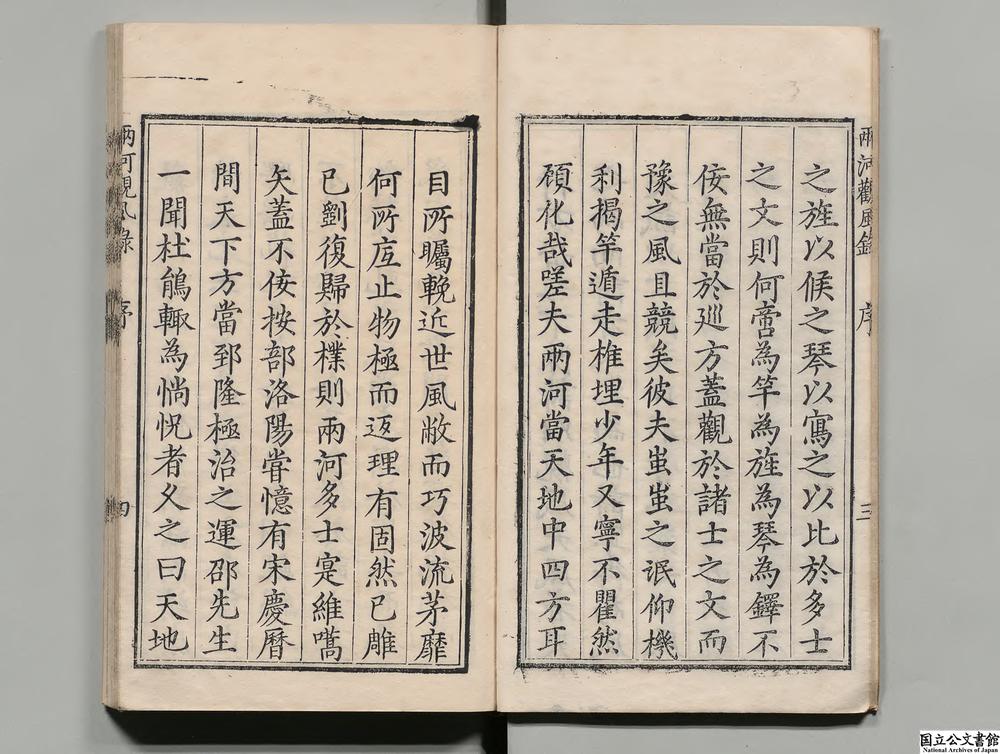 兩河觀風錄
序
三
之旌以候之琴以寫之以比於多士
之文則何啻為竿為旌為琴為鐸不
佞無當於廵方蓋觀於諸士之文而
豫之風且競矣彼夫蚩蚩之氓仰機
利揭竿遁走椎埋少年又寧不瞿然
頋化哉嗟夫兩河當天地中四方耳
目所矚輓近世風敝而巧波流茅靡
何所底止物極而返理有固然已雕
已劉復歸於樸則兩河多士寔維嚆
矢蓋不佞按部洛陽嘗憶有宋慶曆
間天下方當郅隆極治之運邵先生
一聞杜鵑輙為惝怳者久之曰天地
兩河觀風錄
序
四
国立公文書館
National Archives of Japan